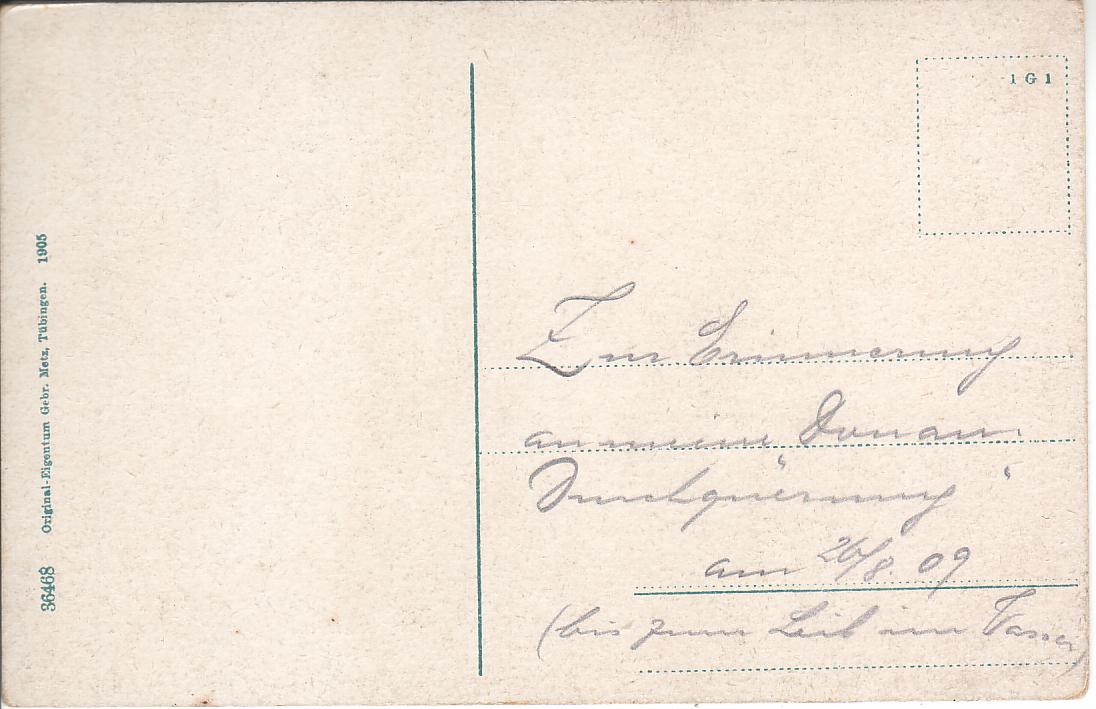 1 G 1
Zur Erinnerung
an meine Donau
Durchquerung"
am 26/8. 09
(bis zum Leib im Wasser)
36468 Original-Eigentum Gebr. Metz, Tübingen. 1905